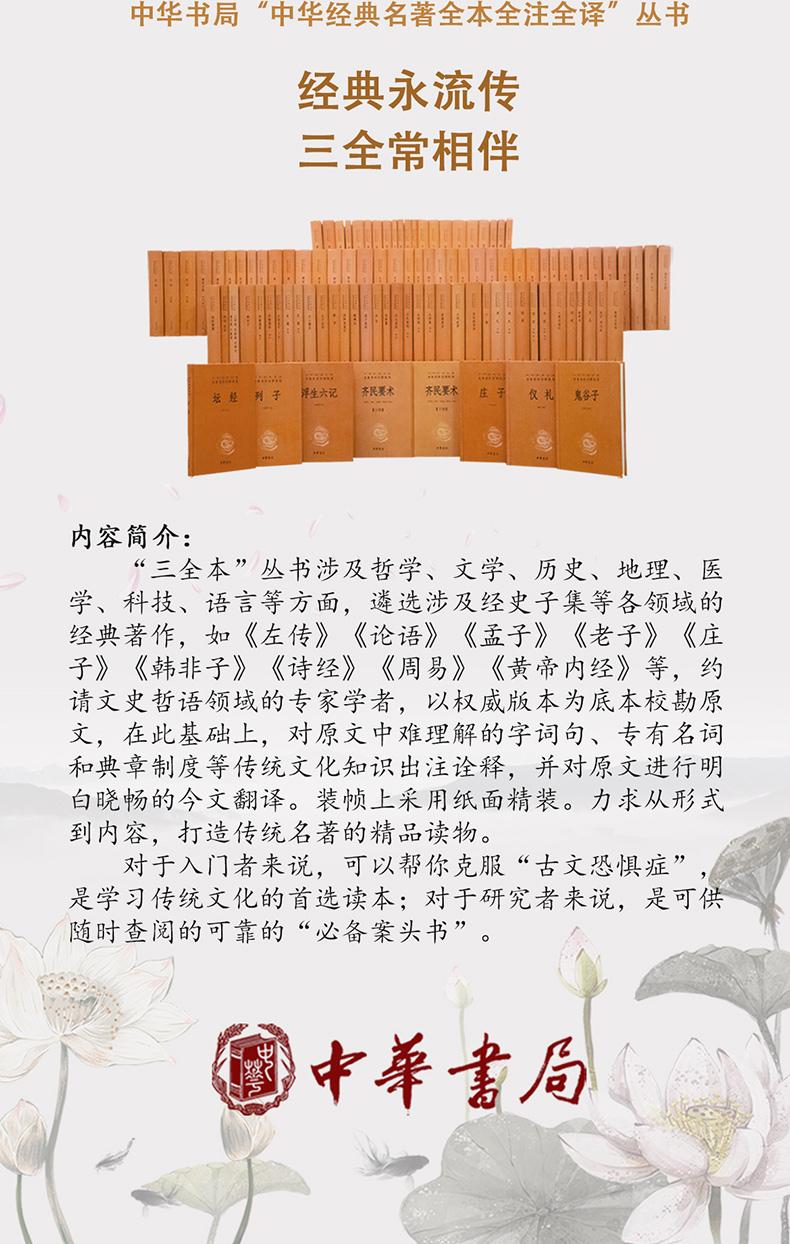 中华书局“中华经典名著全本全注全译”丛书
经典永流传
三全常相伴
坛经
列子
浮生六记
齐民要术
齐民要术
庄子
仪礼
鬼谷子
内容简介：
“三全本”丛书涉及哲学、文学、历史、地理、医
学、科技、语言等方面，遴选涉及经史子集等各领域的
经典著作，如《左传》《论语》《孟子》《老子》《庄
子》《韩非子》《诗经》《周易》《黄帝内经》等，约
请文史哲语领域的专家学者，以权威版本为底本校勘原
文，在此基础上，对原文中难理解的字词句、专有名词
和典章制度等传统文化知识出注诠释，并对原文进行明
白晓畅的今文翻译。装帧上采用纸面精装。力求从形式
到内容，打造传统名著的精品读物。
对于入门者来说，可以帮你克服“古文恐惧症”，
是学习传统文化的首选读本；对于研究者来说，是可供
随时查阅的可靠的“必备案头书”。
中華書局